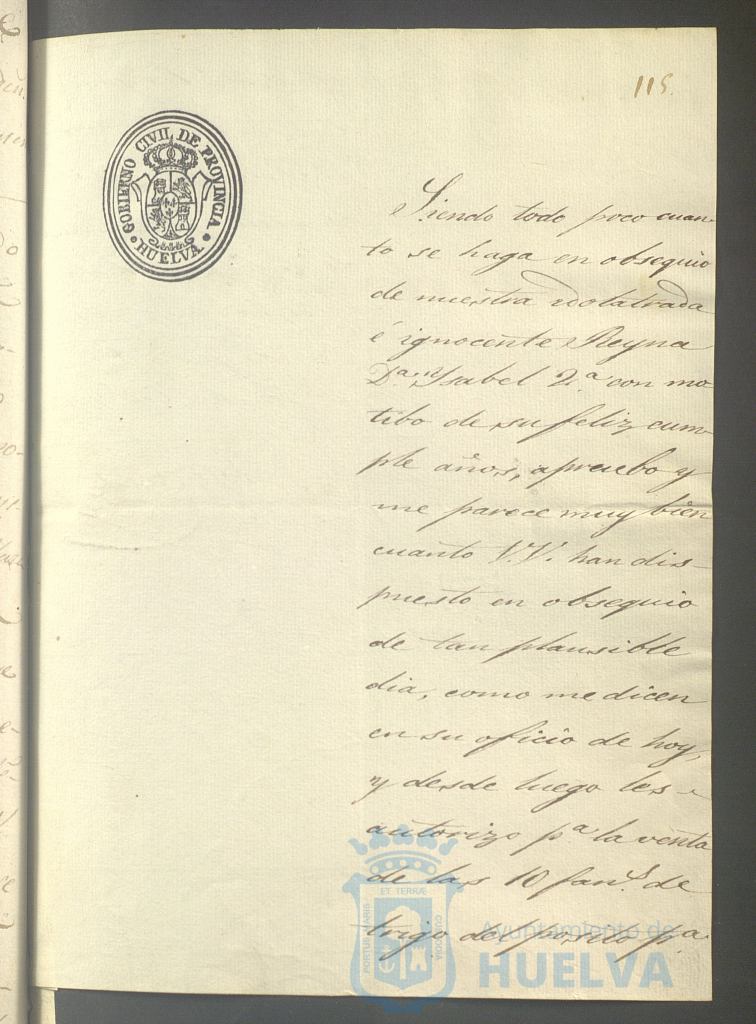 115.
GOBIERNO CIVIL DE PROVINCIA.
HUELVA.
Siendo todo poco cuan-
to se haga en obsequio
de nuestra ydolatrada
é ignocente Reyna
D.ª Ysabel 2.ª con mo
tibo de su feliz cum-
ple años, apruebo y
me parece muy bien
cuanto V.V. han dis-
puesto en obsequio
de tan plausible
dia, como me dicen
en su oficio de hoy,
y desde luego les
autorizo p.ª la venta
de las 10 fan.s de
trigo del posito p.ª
PORTUS MARIS
ET TERRÆ
CUSTODIA
Ayuntamiento de
HUELVA